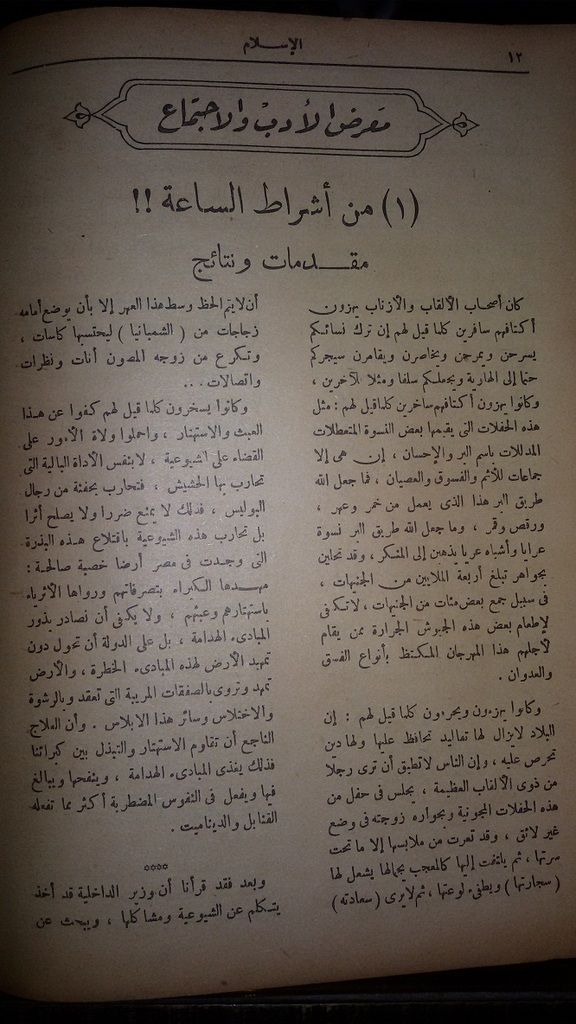 ١٢
الإسلام
معرض الأدب والاجتماع
(١) من أشراط الساعة !!
مقدمات ونتائج
كان أصحاب الألقاب والأزناب يهزون
أكتافهم سافرين كلما قيل لهم إن ترك نسائكم
يسرحن ويمرحن ويخاصرن ويقامرن سيجركم
حتما إلى الهاوية ويجعلكم سلفا ومثلا للآخرين ،
وكانوا يهزون أكتافهم ساخرين كلما قيل لهم : مثل
هذه الحفلات التي يقيمها بعض النسوة المتعطلات
المدللات باسم البر والإحسان ، إن هى إلا
جماعات للأثم والفسوق والعصيان ، فما جعل الله
طريق البر هذا الذى يعمل من خمر وعهر ،
ورقص وقمر ، وما جعل الله طريق البر نسوة
عرايا وأشباه عرايا يذهبن إلى المنكر ، وقد تحلين
بجواهر تبلغ أربعة الملايين من الجنيهات ،
فى سبيل جمع بعض مئات من الجنيهات ، لا تكفى
لإطعام بعض هذه الجيوش الجرارة ممن يقام
لأجلهم هذا المهرجان المكتظ بأنواع الفسق
والعدوان .
وكانوا يهزون ويحرون كلما قيل لهم : إن
البلاد لا يزال لها تقاليد تحافظ عليها ولها دين
تحرص عليه ، وإن الناس لا تطيق أن ترى رجلا
من ذوى الألقاب العظيمة ، يجلس فى حفل من
هذه الحفلات المجونية وبجواره زوجته فى وضع
غير لائق ، وقد تعرت من ملابسها إلا ما تحت
سرتها ، ثم يلتفت إليها كالمعجب بجمالها يشعل لها
( سجارتها ) ويطفىء لوعتها ، ثم لا يرى ( سعادته )
أن لا يتم الحظ وسط هذا العهر إلا بأن يوضع أمامه
زجاجات من ( الشمبانيا ) ليحتسيها كاسات ،
وتكرع من زوجه المصون أنات ونظرات
واتصالات ...
وكانوا يسخرون كلما قيل لهم كفوا عن هذا
العبث والاستهتار ، واحملوا ولاة الأمور على
القضاء على الشيوعية ، لا بنفس الأداة البالية التى
تحارب بها الحشيش ، فتحارب بحفنة من رجال
البوليس ، فذلك لا يمنع ضررا ولا يصلح أثرا
بل تحارب هذه الشيوعية باقتلاع هذه البذرة
التى وجدت فى مصر أرضا خصبة صالحة :
مهدها الكبراء بتصرفاتهم ورواها الأثرياء
باستهتارهم وعبثهم ، ولا يكفى أن نصادر بذور
المبادىء الهدامة ، بل على الدولة أن تحول دون
تمهيد الأرض لهذه المبادىء الخطرة ، والأرض
تمهد وتروى بالصفقات المريبة التى تعقد وبالرشوة
والاختلاس وسائر هذا الابلاس . وأن العلاج
الناجع أن تقاوم الاستهتار والتبذل بين كبرائنا
فذلك يغذى المبادىء الهدامة ، وينفحها ويبالغ
فيها ويفعل فى النفوس المضطربة أكثر مما تفعله
القنابل والديناميت .
****
وبعد فقد قرأنا أن وزير الداخلية قد أخذ
يتكلم عن الشيوعية ومشاكلها ، ويبحث عن